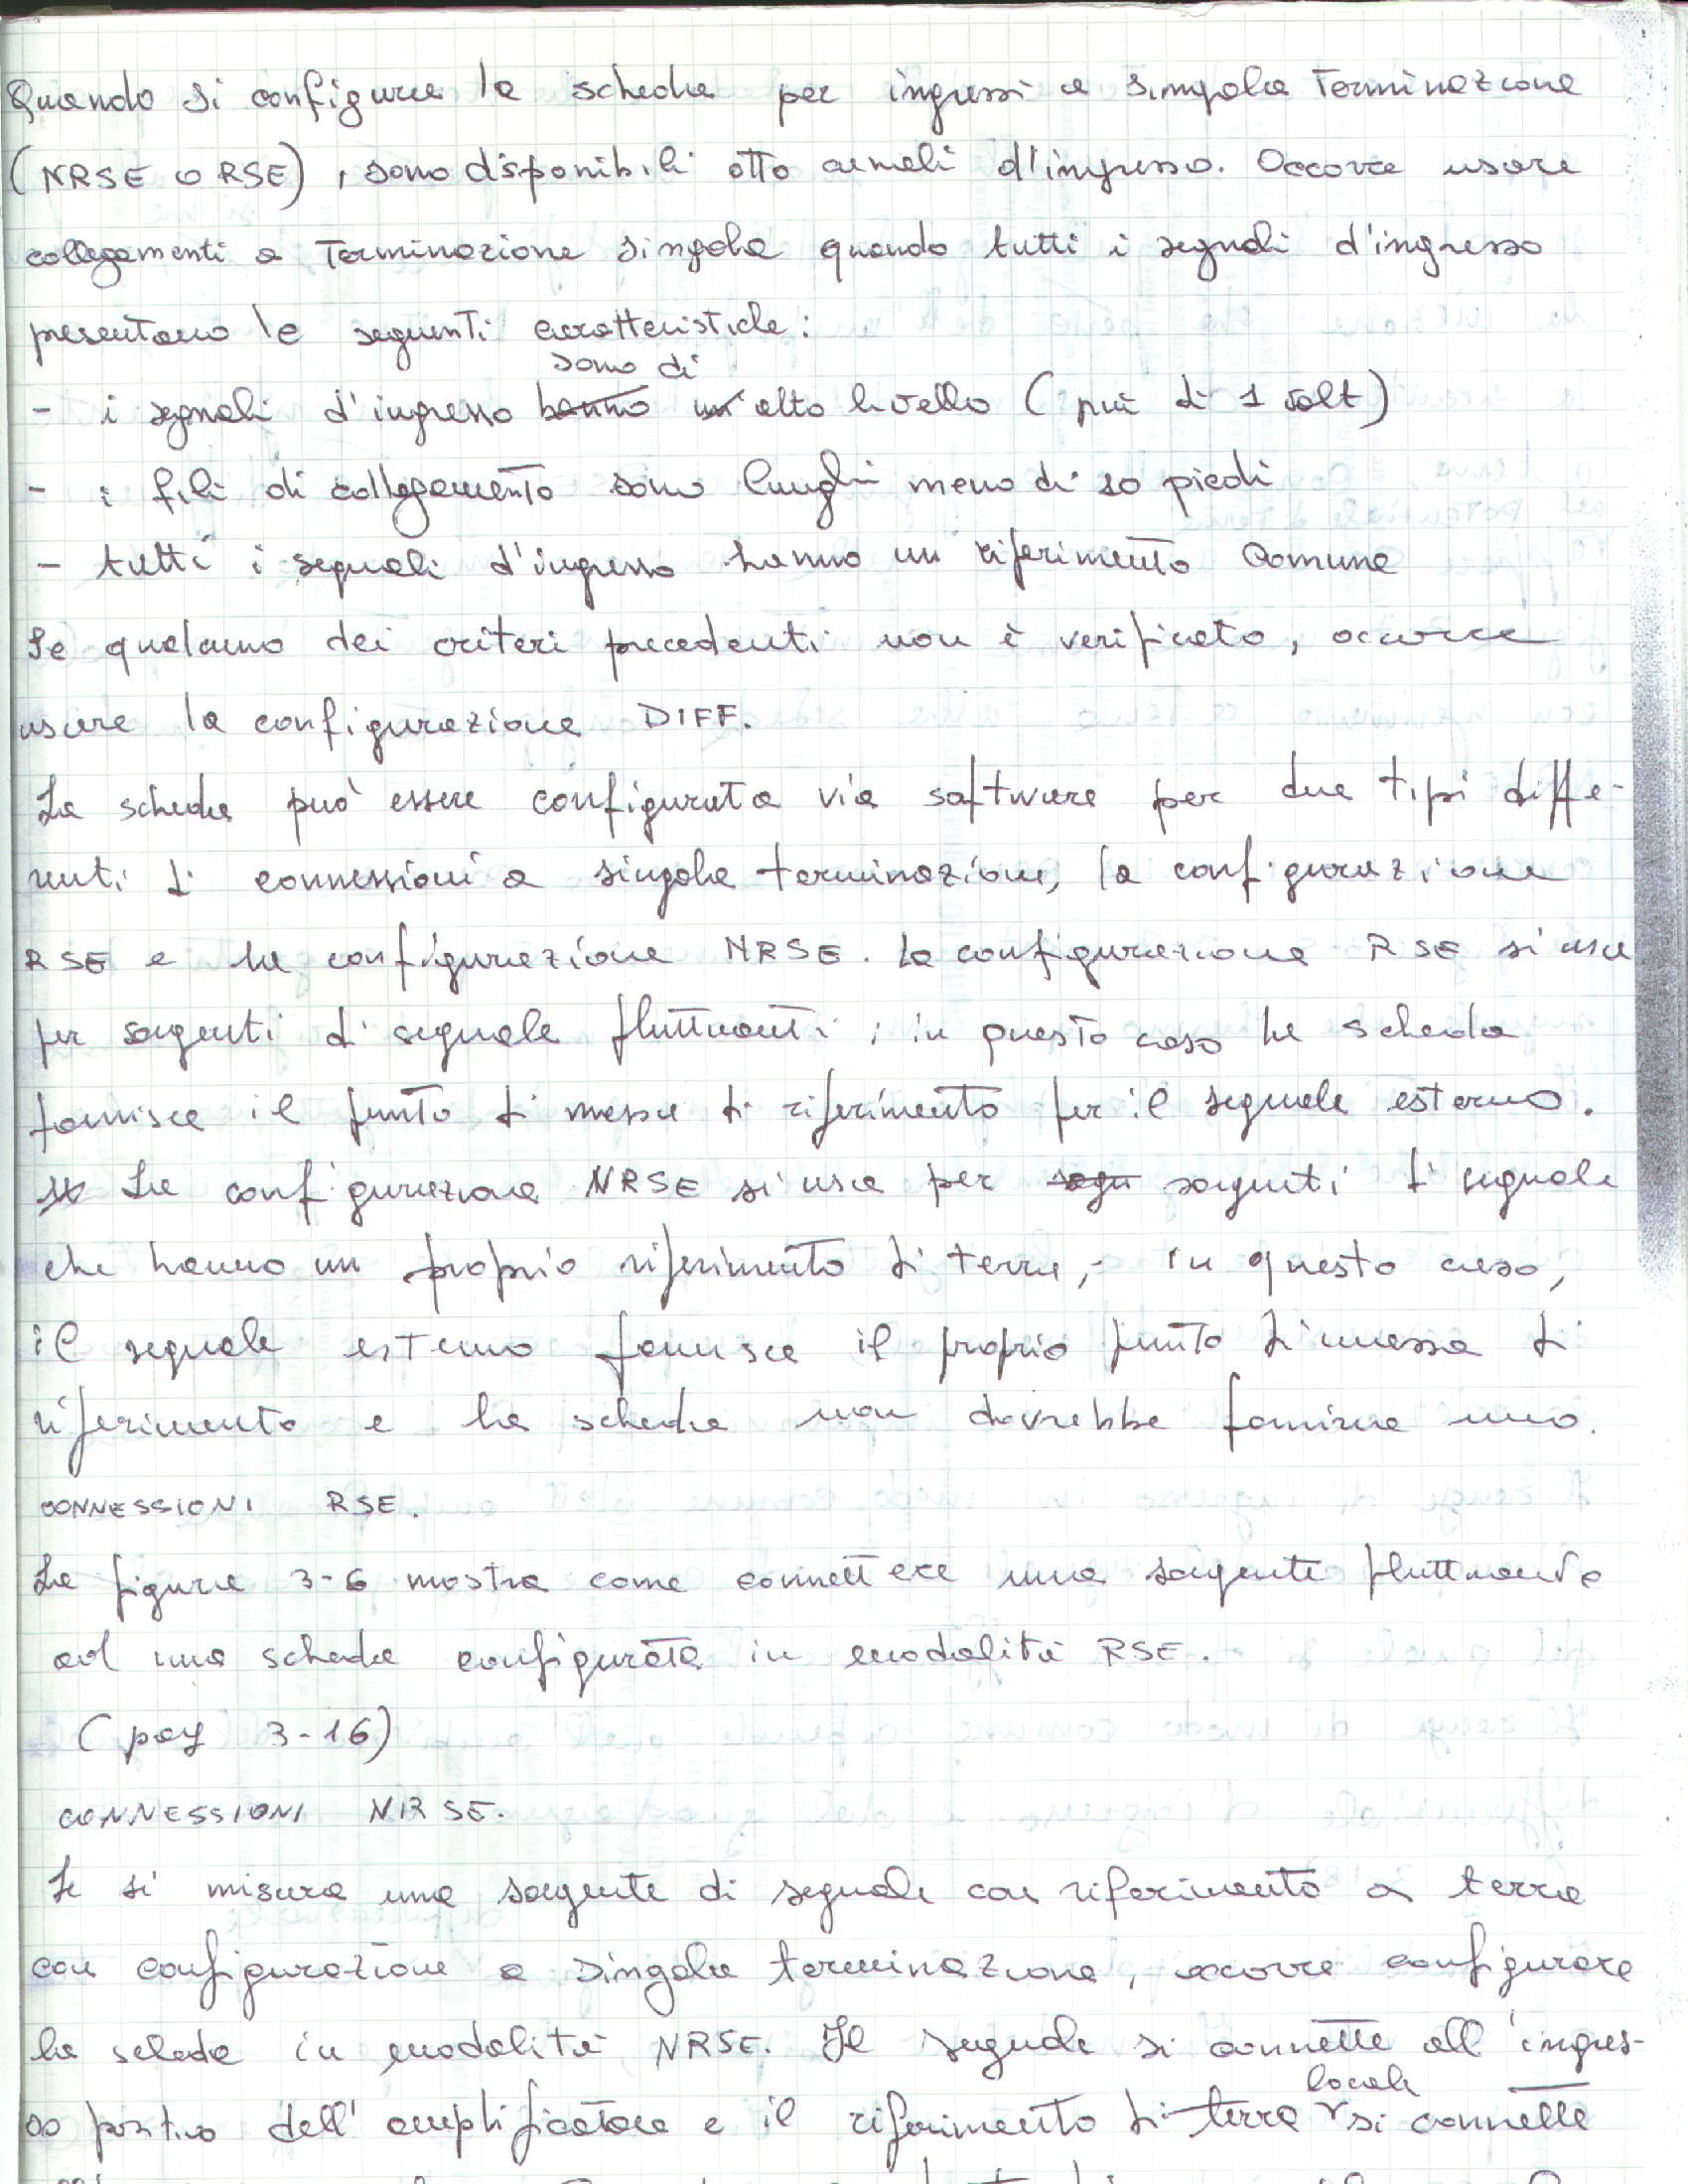 Quando si configura la scheda per ingressi a singola terminazione
(NRSE o RSE), sono disponibili otto canali d'ingresso. Occorre usare
collegamenti a terminazione singola quando tutti i segnali d'ingresso
presentano le seguenti caratteristiche:
sono di
- i segnali d'ingresso hanno un alto livello (più di 1 volt)
- i fili di collegamento sono lunghi meno di 10 piedi
- tutti i segnali d'ingresso hanno un riferimento comune
Se qualcuno dei criteri precedenti non è verificato, occorre
usare la configurazione DIFF.
La scheda può essere configurata via software per due tipi diffe-
renti di connessioni a singola terminazione, la configurazione
RSE e la configurazione NRSE. La configurazione RSE si usa
per sorgenti di segnale fluttuanti; in questo caso la scheda
fornisce il punto di messa di riferimento per il segnale esterno.
La configurazione NRSE si usa per sorgenti di segnale
che hanno un proprio riferimento di terra; in questo caso,
il segnale esterno fornisce il proprio punto di messa di
riferimento e la scheda non dovrebbe fornirne uno.
CONNESSIONI RSE.
La figura 3-6 mostra come connettere una sorgente fluttuante
ad una scheda configurata in modalità RSE.
(pag 3-16)
CONNESSIONI NRSE.
Se si misura una sorgente di segnale con riferimento a terra
con configurazione a singola terminazione, occorre configurare
la scheda in modalità NRSE. Il segnale si connette all'ingres-
locale
so positivo dell'amplificatore e il riferimento di terra si connette